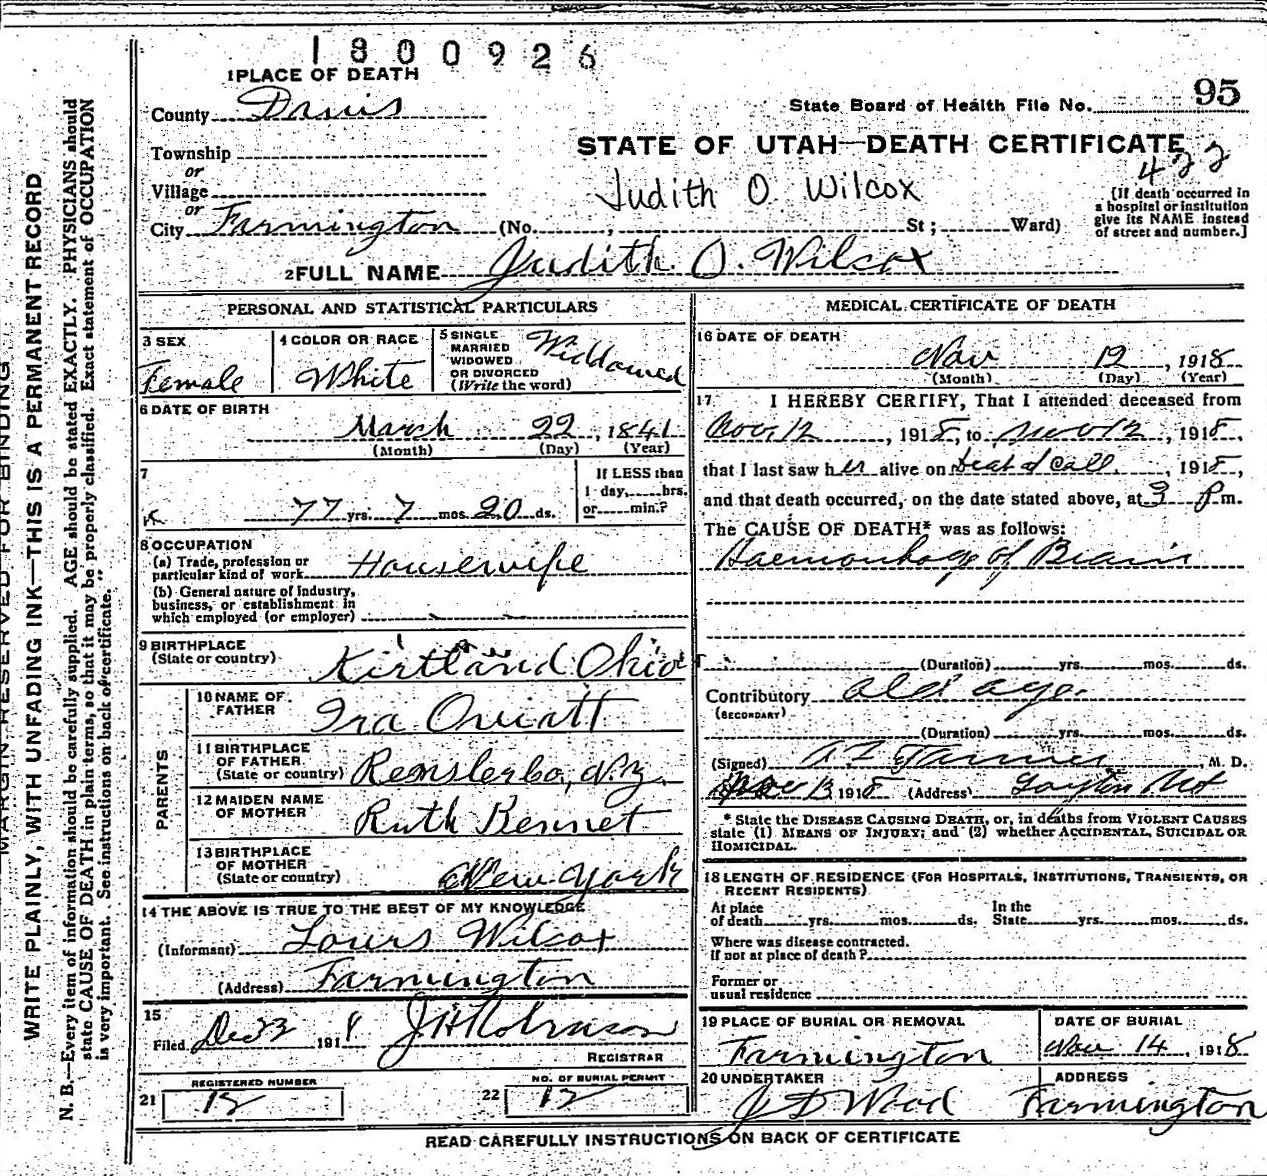 1800926
1 PLACE OF DEATH
County Davis
State Board of Health File No. 95
STATE OF UTAH—DEATH CERTIFICATE
Township
or
Village
or
City Farmington (No. , St ; Ward)
Judith O. Wilcox
422
[If death occurred in
a hospital or institution
give its NAME instead
of street and number.]
2 FULL NAME Judith O. Wilcox
PERSONAL AND STATISTICAL PARTICULARS
3 SEX
Female
4 COLOR OR RACE
White
5 SINGLE
MARRIED
WIDOWED
OR DIVORCED
(Write the word)
Widdowed
6 DATE OF BIRTH
March 22, 1841
(Month) (Day) (Year)
7
77 yrs. 7 mos. 20 ds.
If LESS than
1 day, hrs.
or min.?
8 OCCUPATION
(a) Trade, profession or
particular kind of work Housewife
(b) General nature of Industry,
business, or establishment in
which employed (or employer)
9 BIRTHPLACE
(State or country) Kirtland Ohio
PARENTS
10 NAME OF
FATHER Ira Oviatt
11 BIRTHPLACE
OF FATHER
(State or country) N.Y.
12 MAIDEN NAME
OF MOTHER Ruth Bennet
13 BIRTHPLACE
OF MOTHER
(State or country) New York
14 THE ABOVE IS TRUE TO THE BEST OF MY KNOWLEDGE
(Informant) Louis Wilcox
(Address) Farmington
15
Filed Dec 23 1918 J H Robinson
REGISTRAR
21 REGISTERED NUMBER
12
22 NO. OF BURIAL PERMIT
12
MEDICAL CERTIFICATE OF DEATH
16 DATE OF DEATH
Nov 12, 1918
(Month) (Day) (Year)
17 I HEREBY CERTIFY, That I attended deceased from
Nov. 12, 1918, to Nov 12, 1918,
that I last saw her alive on Dead at Call, 1918,
and that death occurred, on the date stated above, at 3 P m.
The CAUSE OF DEATH* was as follows:
Haemorrhage of Brain
(Duration) yrs. mos. ds.
Contributory old age.
(SECONDARY)
(Duration) yrs. mos. ds.
(Signed) , M. D.
Nov 13 1918 (Address) Layton Ut
* State the DISEASE CAUSING DEATH, or, in deaths from VIOLENT CAUSES
state (1) MEANS OF INJURY; and (2) whether ACCIDENTAL, SUICIDAL OR
HOMICIDAL.
18 LENGTH OF RESIDENCE (FOR HOSPITALS, INSTITUTIONS, TRANSIENTS, OR
RECENT RESIDENTS)
At place
of death yrs. mos. ds.
In the
State yrs. mos. ds.
Where was disease contracted.
If not at place of death?
Former or
usual residence
19 PLACE OF BURIAL OR REMOVAL
Farmington
DATE OF BURIAL
Nov 14, 1918
20 UNDERTAKER
J D Wood
ADDRESS
Farmington
READ CAREFULLY INSTRUCTIONS ON BACK OF CERTIFICATE
MARGIN RESERVED FOR BINDING
WRITE PLAINLY, WITH UNFADING INK—THIS IS A PERMANENT RECORD
N. B.—Every item of information should be carefully supplied. AGE should be stated EXACTLY. PHYSICIANS should
state CAUSE OF DEATH in plain terms, so that it may be properly classified. Exact statement of OCCUPATION
is very important. See instructions on back of certificate."